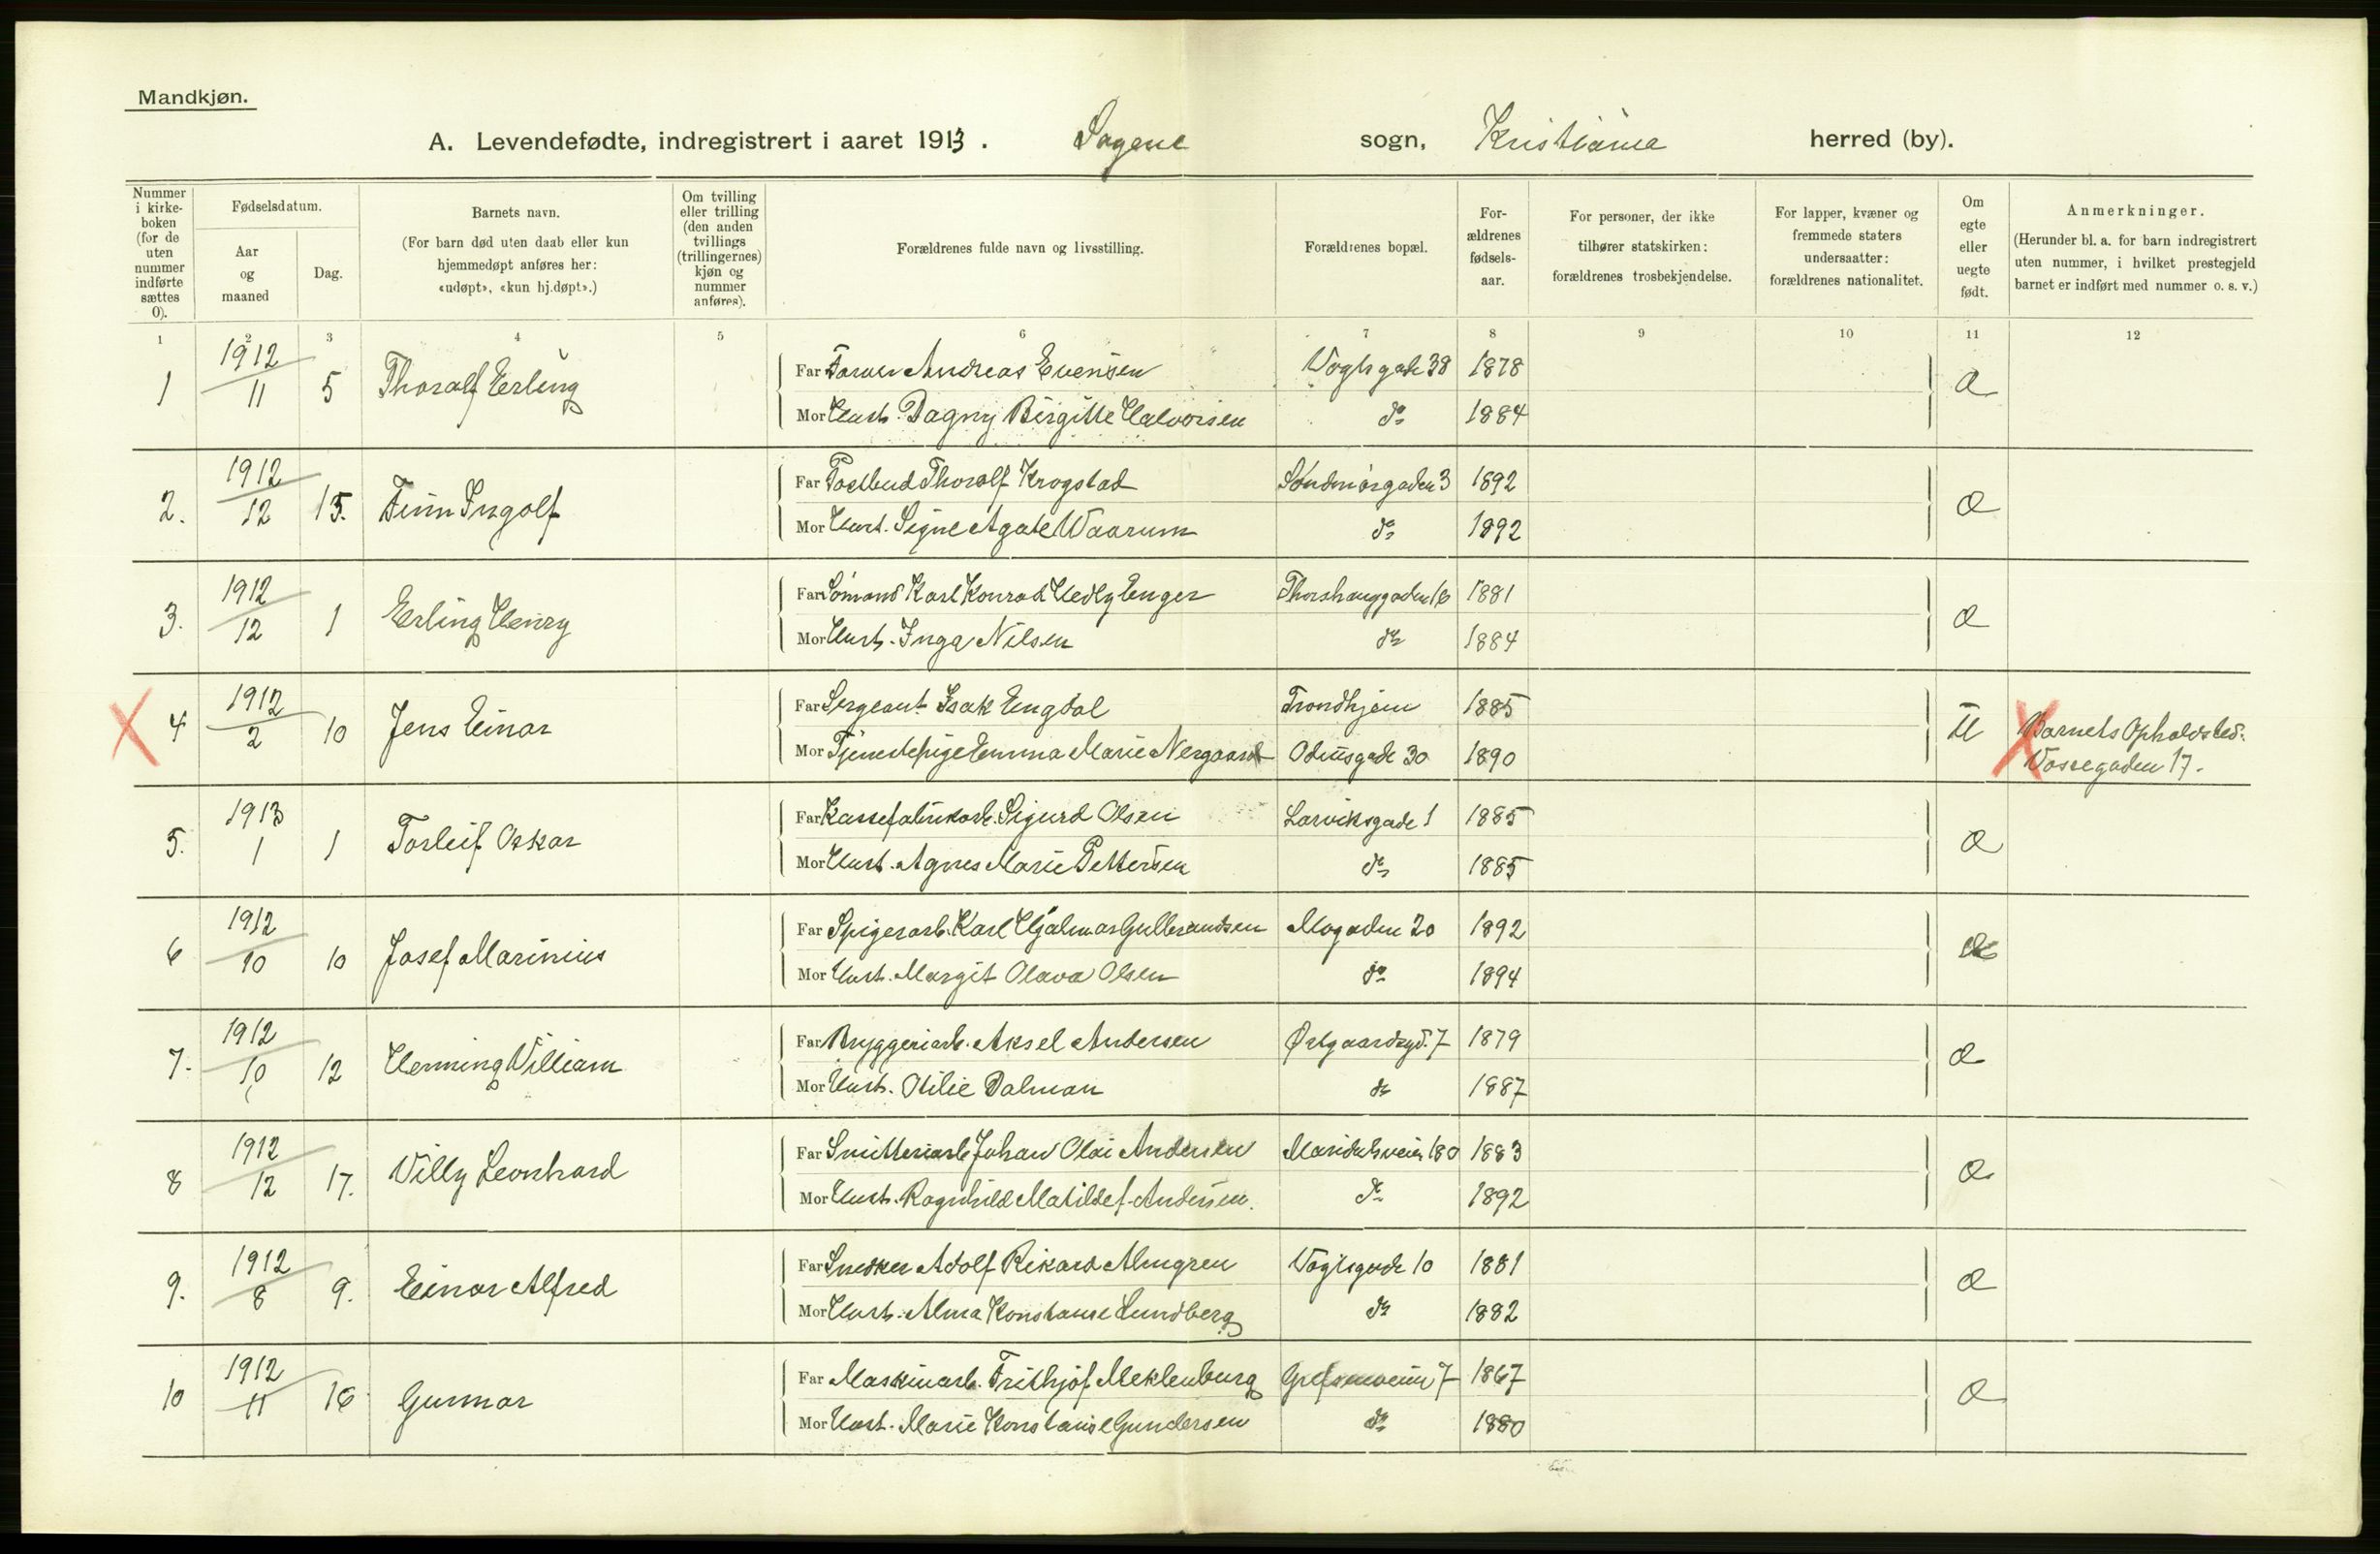 Mandkjøn.
A. Levendefødte, indregistrert i aaret 1913. Sagene sogn, Kristiania herred (by).
Nummer i kirke-boken (for de uten nummer indførte sættes 0).
Fødselsdatum.
Aar og maaned
Dag.
Barnets navn.
(For barn død uten daab eller kun hjemmedøpt anføres her: «udøpt», «kun hj.døpt».)
Om tvilling eller trilling (den anden tvillings (trillingernes) kjøn og nummer anføres).
Forældrenes fulde navn og livsstilling.
Forældrenes bopæl.
For-ældrenes fødsels-aar.
For personer, der ikke tilhører statskirken: forældrenes trosbekjendelse.
For lapper, kvæner og fremmede staters undersaatter: forældrenes nationalitet.
Om egte eller uegte født.
Anmerkninger.
(Herunder bl. a. for barn indregistrert uten nummer, i hvilket prestegjeld barnet er indført med nummer o. s. v.)
1 2 3 4 5 6 7 8 9 10 11 12
1 1912/11 5 Thoralf Erling Far Farver Andreas Evensen Vogtsgade 38 1878
Mor Hust. Dagny Birgitte Halvorsen do 1884
2. 1912/12 15. Finn Ingolf Far Postbud Thoralf Krogstad Søndmørgaden 3 1892
Mor Hust. Signe Agate Waarum do 1892
3. 1912/12 1 Erling Henry Far Sømand Karl Konrad Hedly Enger Thorshauggaden 16 1881
Mor Hust. Inga Nilsen do 1884
X 4 1912/2 10 Jens Einar Far Sergeant Isak Engdal Trondhjem 1885 U X Barnets Opholdsted.
Mor Tjenestepige Emma Marie Nergaard Odinsgade 30 1890 Vossegaden 17.
5. 1913 1 1 Torleif Oskar Far Kassefabrikarb. Sigurd Olsen Larviksgade 1 1885
Mor Hust. Agnes Marie Pettersen do 1885
6 1912/10 10 Josef Marinius Far Spigerarb. Karl Hjalmar Gulbrandsen Mogaden 20 1892
Mor Hust. Margit Olava Olsen do 1894
7. 1912/10 12 Henning William Far Bryggeriarb. Aksel Andersen Østgaardsgd. 7 1879
Mor Hust. Otilie Dalman do 1887
8 1912/12 17. Villy Leonhard Far Johan Olai Andersen Maridalsveien 180 1883
Mor Hust. Ragnhild Matilde f. Andersen. do 1892
9. 1912/8 9. Einar Alfred Far Snedker Adolf Rikard Almgren Vogtsgade 10 1881
Mor Hust. Alma Konstanse Lundberg do 1882
10 1912/11 16 Gunnar Far Maskinarb. Frithjof Meklenburg Grefsenveien 7 1867
Mor Hust. Marie Konstanse Gundersen do 1880